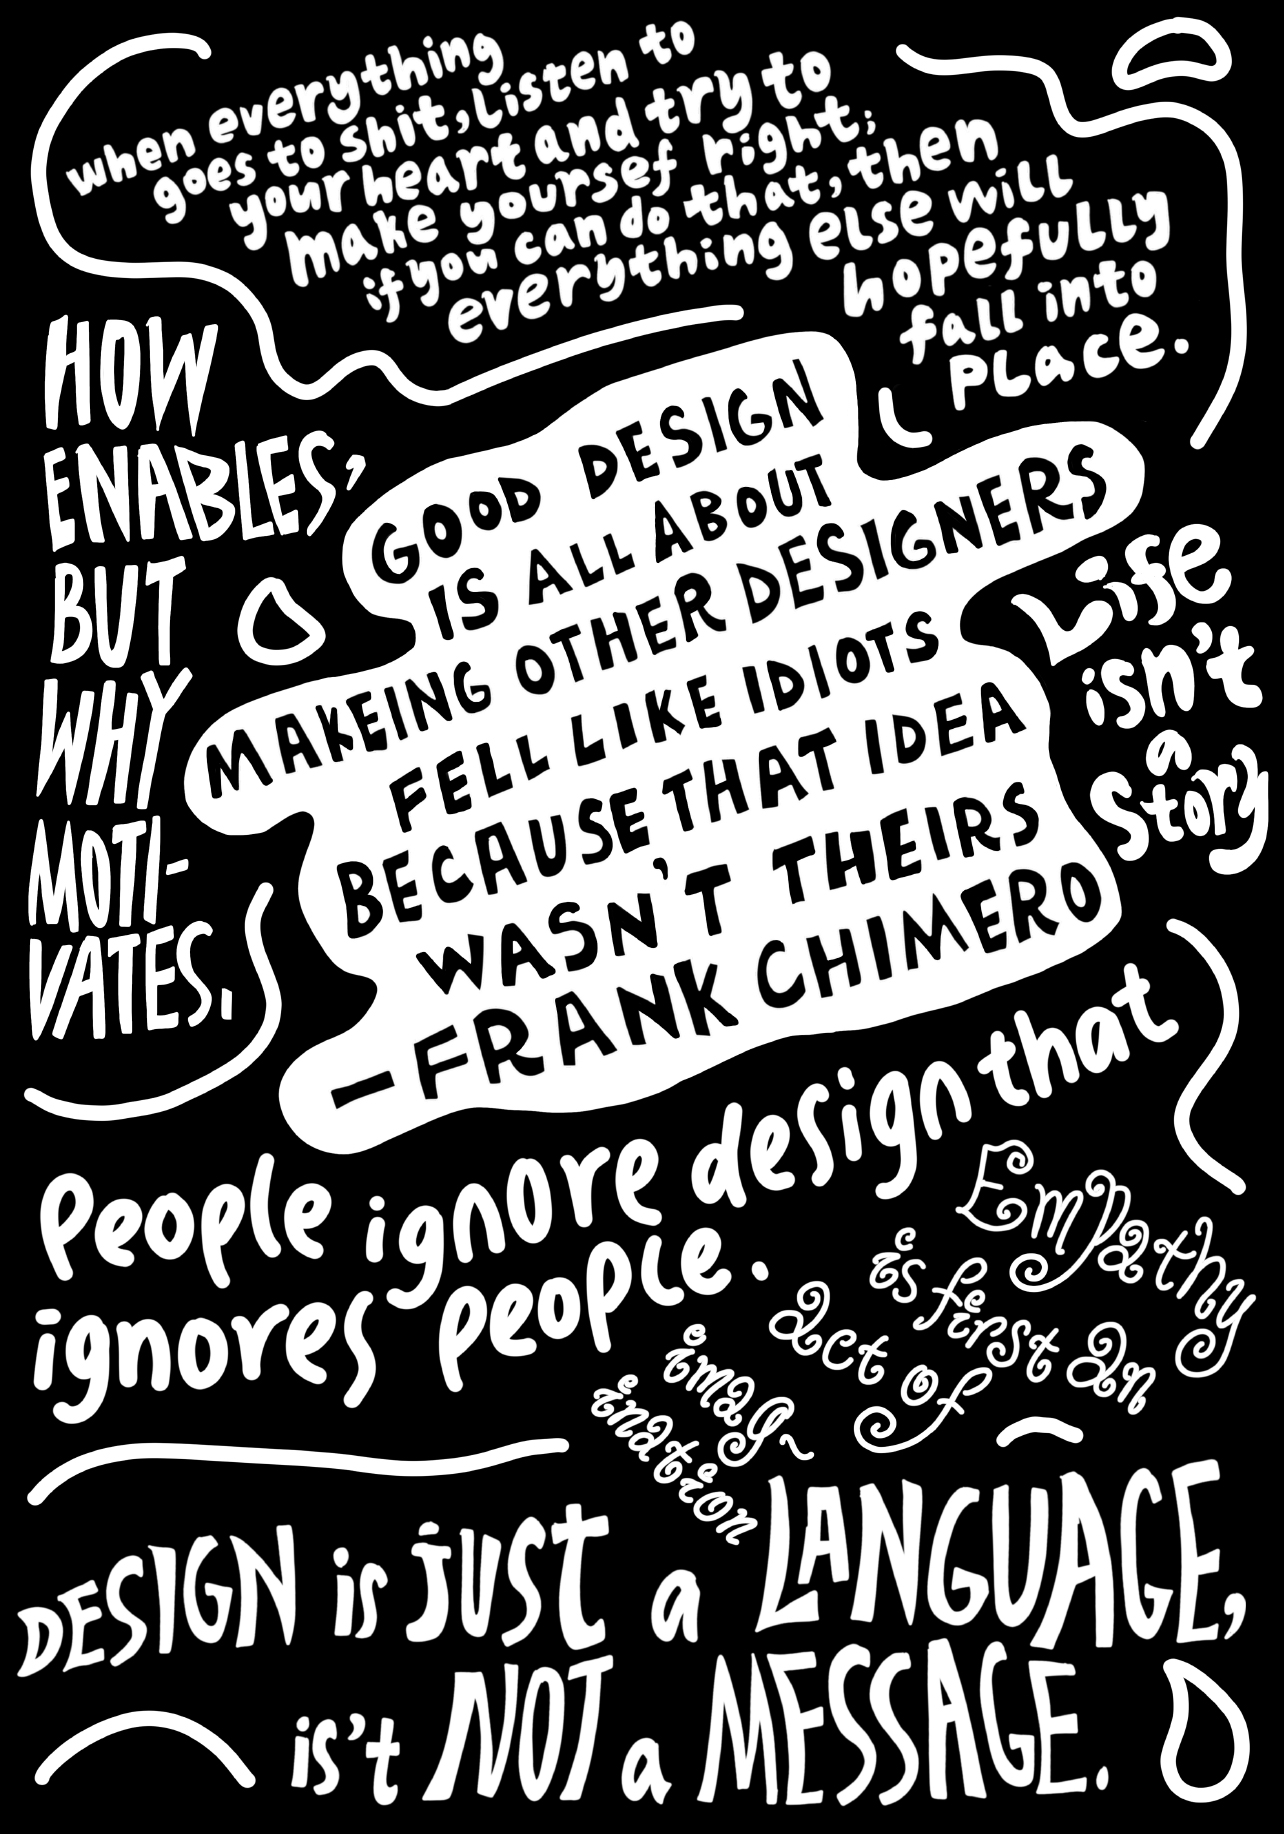 when everything
goes to shit, listen to
your heart and try to
make yoursef right;
if you can do that, then
everything else will
hopefully
fall into
place.
HOW
ENABLES,
BUT
WHY
MOTI-
VATES.
GOOD DESIGN
IS ALL ABOUT
MAKEING OTHER DESIGNERS
FELL LIKE IDIOTS
BECAUSE THAT IDEA
WASN'T THEIRS
—FRANK CHIMERO
Life
isn't
a
Story
People ignore design that
ignores people.
Empathy
is first an
act of
imag-
ination
DESIGN is JUST a LANGUAGE,
is't NOT a MESSAGE.